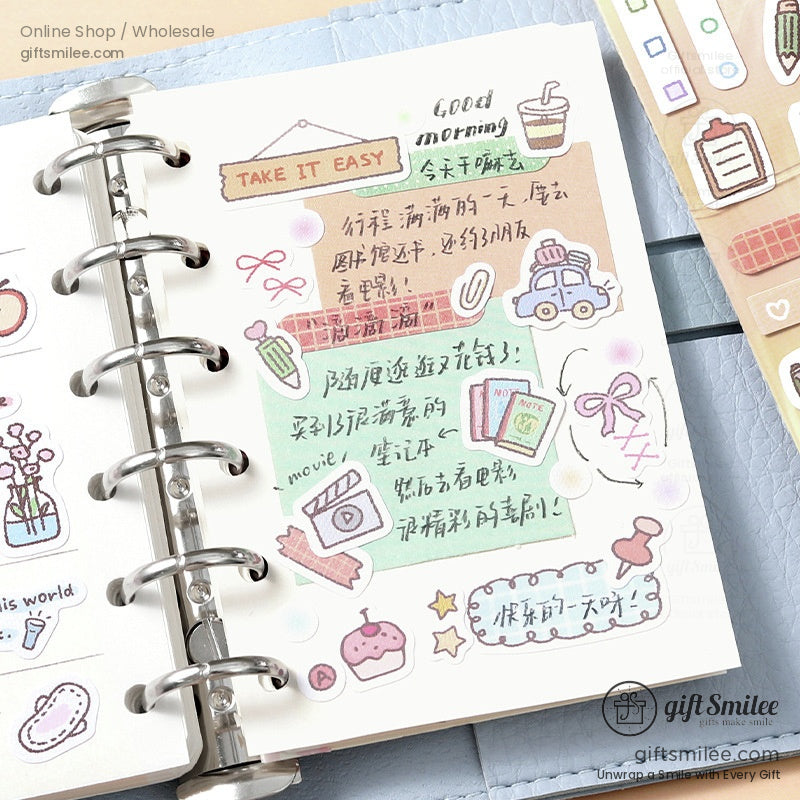 Online Shop / Wholesale
giftsmilee.com
Good
morning
TAKE IT EASY
今天干嘛去
行程满满的一天,要去
图书馆还书,还约了朋友
看电影!
"滴滴滴"
随便逛逛又花钱了!
买到了很满意的
movie, 笔记本
然后去看电影
很精彩的喜剧!
NOTE
NOTE
快乐的一天呀!
his world
A
gift Smilee
gifts make smile
giftsmilee.com
Unwrap a Smile with Every Gift
Giftsmilee